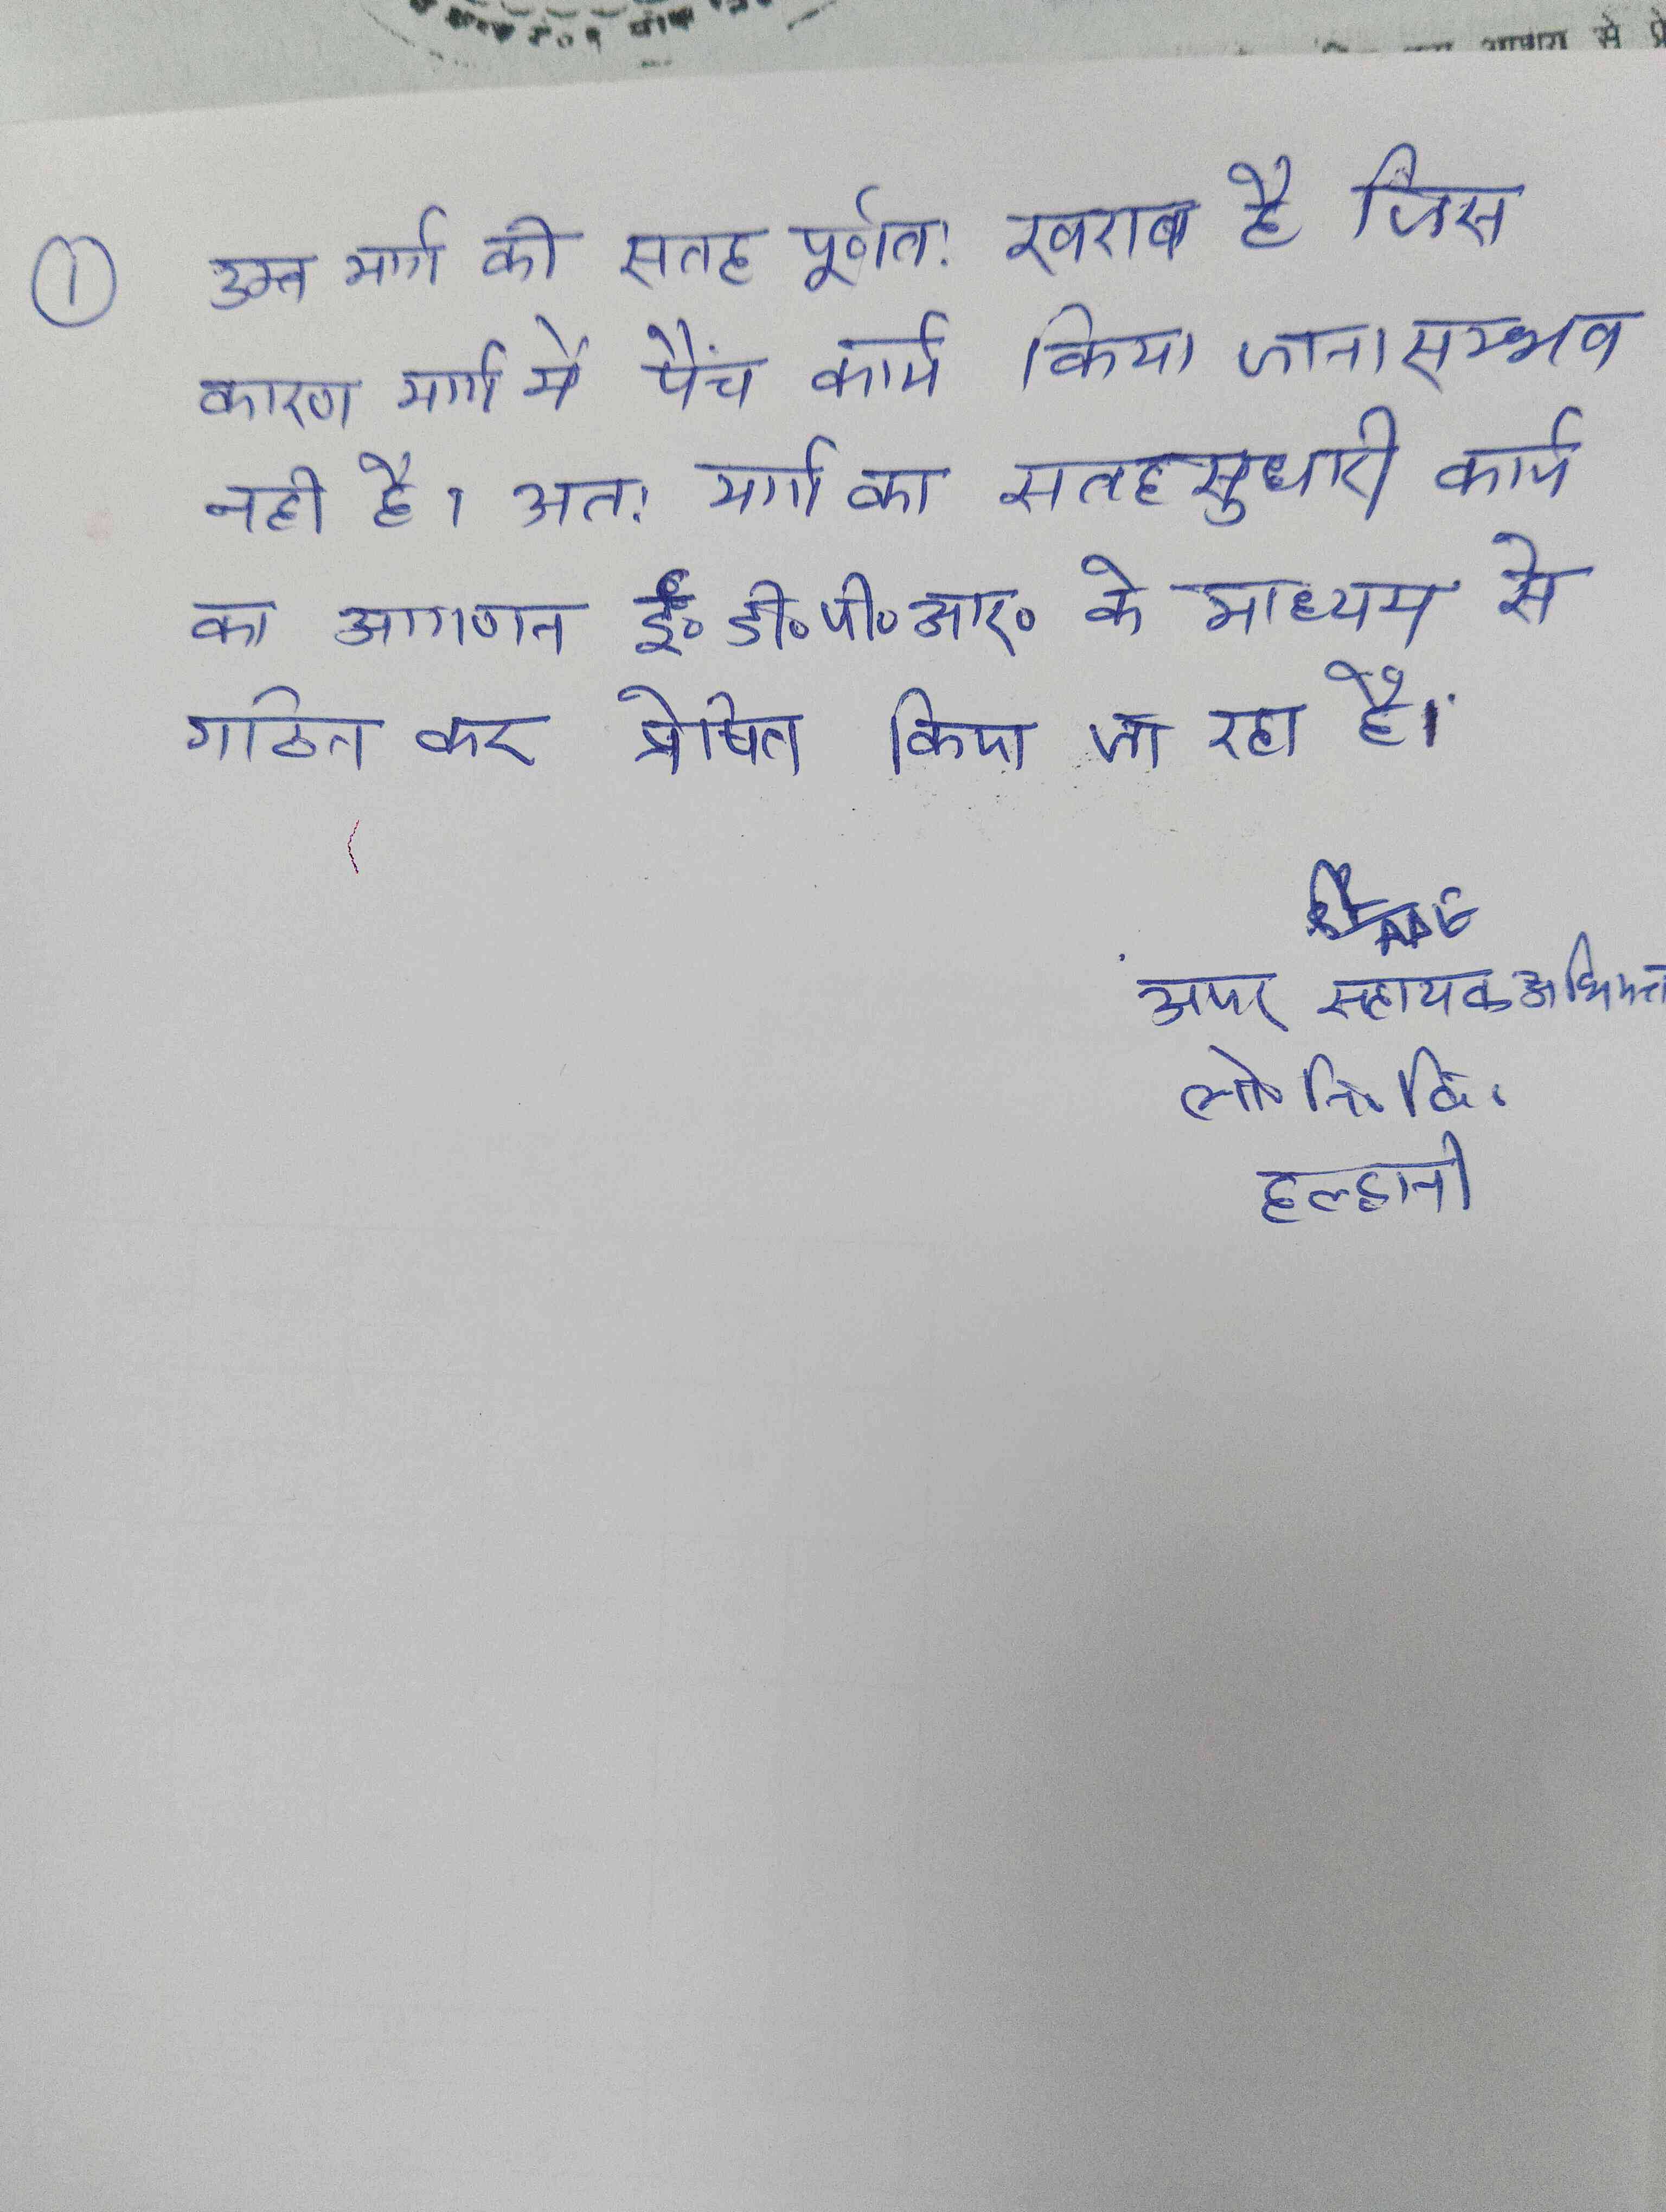 आशय से प्रे
① उक्त मार्ग की सतह पूर्णतः खराब है जिस
कारण मार्ग में पैंच कार्य किया जाना सम्भव
नही है। अतः मार्ग का सतह सुधारी कार्य
का आगणन ई॰ डी॰ पी॰ आर॰ के माध्यम से
गठित कर प्रेषित किया जा रहा है।
अपर सहायक अभियन्ता
लो॰ नि॰ वि॰
हल्द्वानी